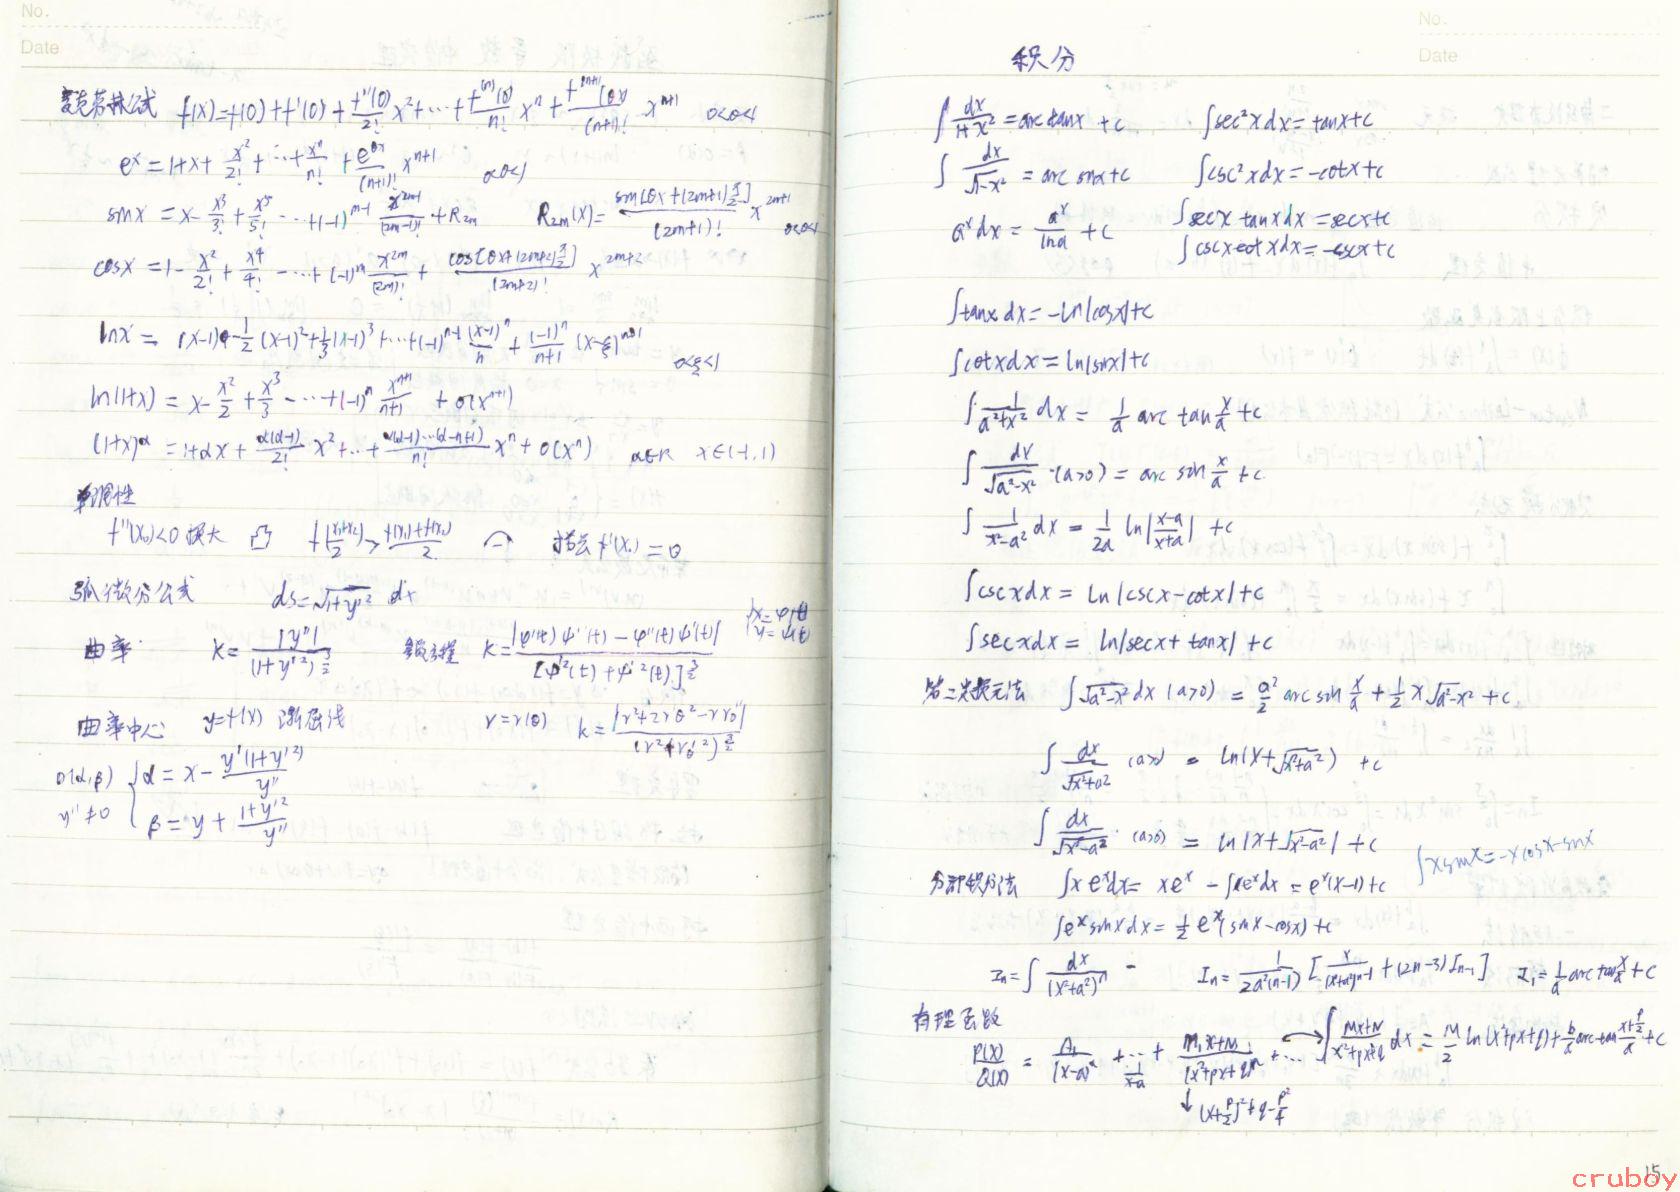 No.
Date
麦克劳林公式 f(x)=f(0)+f'(0)+f''(0)/2! x²+…+f⁽ⁿ⁾(0)/n! xⁿ+f⁽ⁿ⁺¹⁾(θx)/(n+1)! xⁿ⁺¹ 0<θ<1
eˣ=1+x+x²/2!+…+xⁿ/n!+e^θx/(n+1)! xⁿ⁺¹ 0<θ<1
sinx=x-x³/3!+x⁵/5!…+(-1)^(m-1) x^(2m-1)/(2m-1)!+R₂ₘ R₂ₘ(x)=sin[θx+(2m+1)π/2]/(2m+1)! x^(2m+1) 0<θ<1
cosx=1-x²/2!+x⁴/4!-…+(-1)ᵐ x^(2m)/(2m)!+cos[θx+(2m+2)π/2]/(2m+2)! x^(2m+2)
lnx=(x-1)-1/2(x-1)²+1/3(x-1)³+…+(-1)ⁿ⁻¹(x-1)ⁿ/n+(-1)ⁿ/(n+1) (x-ξ)ⁿ⁺¹ 0<ξ<1
ln(1+x)=x-x²/2+x³/3-…+(-1)ⁿ xⁿ⁺¹/(n+1)+o(xⁿ⁺¹)
(1+x)^α=1+αx+α(α-1)/2! x²+…+α(α-1)…(α-n+1)/n! xⁿ+o(xⁿ) α∈R x∈(-1,1)
单调性
f''(x₀)<0 极大 凸 f((x₁+x₂)/2)>(f(x₁)+f(x₂))/2 拐点 f''(x₀)=0
弧微分公式 ds=√(1+y'²) dx
曲率 K=|y''|/(1+y'²)^(3/2) 参数方程 K=|φ'(t)ψ''(t)-φ''(t)ψ'(t)|/[φ'²(t)+ψ'²(t)]^(3/2) {x=φ(t) y=ψ(t)
曲率中心 y=f(x) 渐屈线 r=r(θ) k=|r²+2r'θ²-r rθ''|/(r²+rθ'²)^(3/2)
D(α,β) {α=x-y'(1+y'²)/y''
y''≠0 β=y+(1+y'²)/y''
No.
Date
积分
∫dx/(1+x²)=arctanx+c ∫sec²xdx=tanx+c
∫dx/√(1-x²)=arcsinx+c ∫csc²xdx=-cotx+c
aˣdx=aˣ/lna+c ∫secx tanxdx=secx+c
∫cscxcotxdx=-cscx+c
∫tanxdx=-ln|cosx|+c
∫cotxdx=ln|sinx|+c
∫1/(a²+x²) dx=1/a arctan x/a+c
∫dx/√(a²-x²) (a>0)=arcsin x/a+c
∫1/(x²-a²) dx=1/2a ln|(x-a)/(x+a)|+c
∫cscxdx=ln|cscx-cotx|+c
∫secxdx=ln|secx+tanx|+c
第二类换元法 ∫√(a²-x²)dx (a>0)=a²/2 arcsin x/a+1/2 x√(a²-x²)+c
∫dx/√(x²+a²) (a>0)=ln(x+√(x²+a²))+c
∫dx/√(x²-a²) (a>0)=ln|x+√(x²-a²)|+c
∫xsinx=-xcosx-sinx
分部积分法 ∫xeˣdx=xeˣ-∫eˣdx=eˣ(x-1)+c
∫eˣsinxdx=1/2 eˣ(sinx-cosx)+c
Iₙ=∫dx/(x²+a²)ⁿ - Iₙ=1/2a²(n-1) [x/(x²+a²)ⁿ⁻¹+(2n-3)Iₙ₋₁] I₁=1/a arctan x/a+c
有理函数
P(x)/Q(x)=A₁/(x-a)ⁿ+…+1/(x-a) (M₁x+N₁)/(x²+px+q)ⁿ+… ∫(Mx+N)/(x²+px+q) dx=M/2 ln(x²+px+q)+b/a arctan (x+p/2)/a+c
↓(x+p/2)²+q-p²/4
15
cruboy